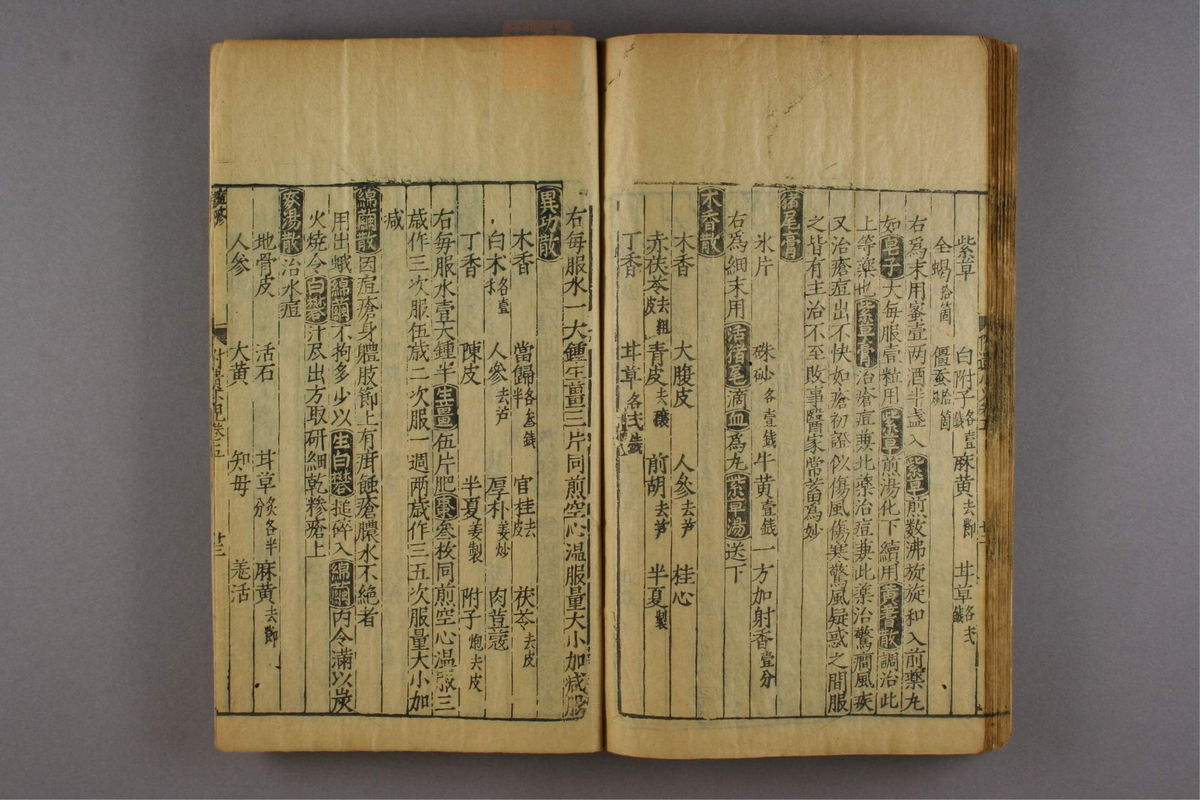 紫草　白附子各壹錢　麻黃去節　甘草各弍錢
全蝎拾箇　僵蚕拾箇
右爲末用蜜壹两酒半盞入紫草煎数沸旋旋和入前藥丸
如皂子大每服壹粒用紫草煎湯化下續用黃耆散調治此
上等藥也紫草膏治瘡痘兼此藥治痘兼此藥治驚癎風疾
又治瘡痘出不快如瘡初證似傷風傷寒驚風疑惑之間服
之皆有主治不至敗事醫家常蓄爲妙
猪尾膏
氷片　硃砂各壹錢　牛黃壹錢　一方加射香壹分
右爲細末用活猪尾滴血爲丸紫草湯送下
木香散
木香　大腹皮　人參去芦　桂心
赤茯苓去粗皮　青皮去穰　前胡去芦　半夏製
丁香　甘草各弍錢
右每服水一大鍾生薑三片同煎空心温服量大小加减服
異功散
木香　當歸各叁錢半　官桂去皮　茯苓去皮
白木各壹　人參去芦　厚朴姜炒　肉荳蔻
丁香　陳皮　半夏姜製　附子炮去皮
右每服水壹大鍾半生薑伍片肥棗叁枚同煎空心温服三
歲作三次服伍歲二次服一週两歲作三五次服量大小加
减
綿繭散因痘瘡身體肢節上有疳蝕瘡膿水不絕者
用出蛾綿繭不拘多少以生白礬搥碎入綿繭內令滿以炭
火燒令白礬汁尽出方取研細乾糝瘡上
麥湯散治水痘
地骨皮　活石　甘草炙各半分　麻黃去節
人參　大黃　知母　羗活
卄三